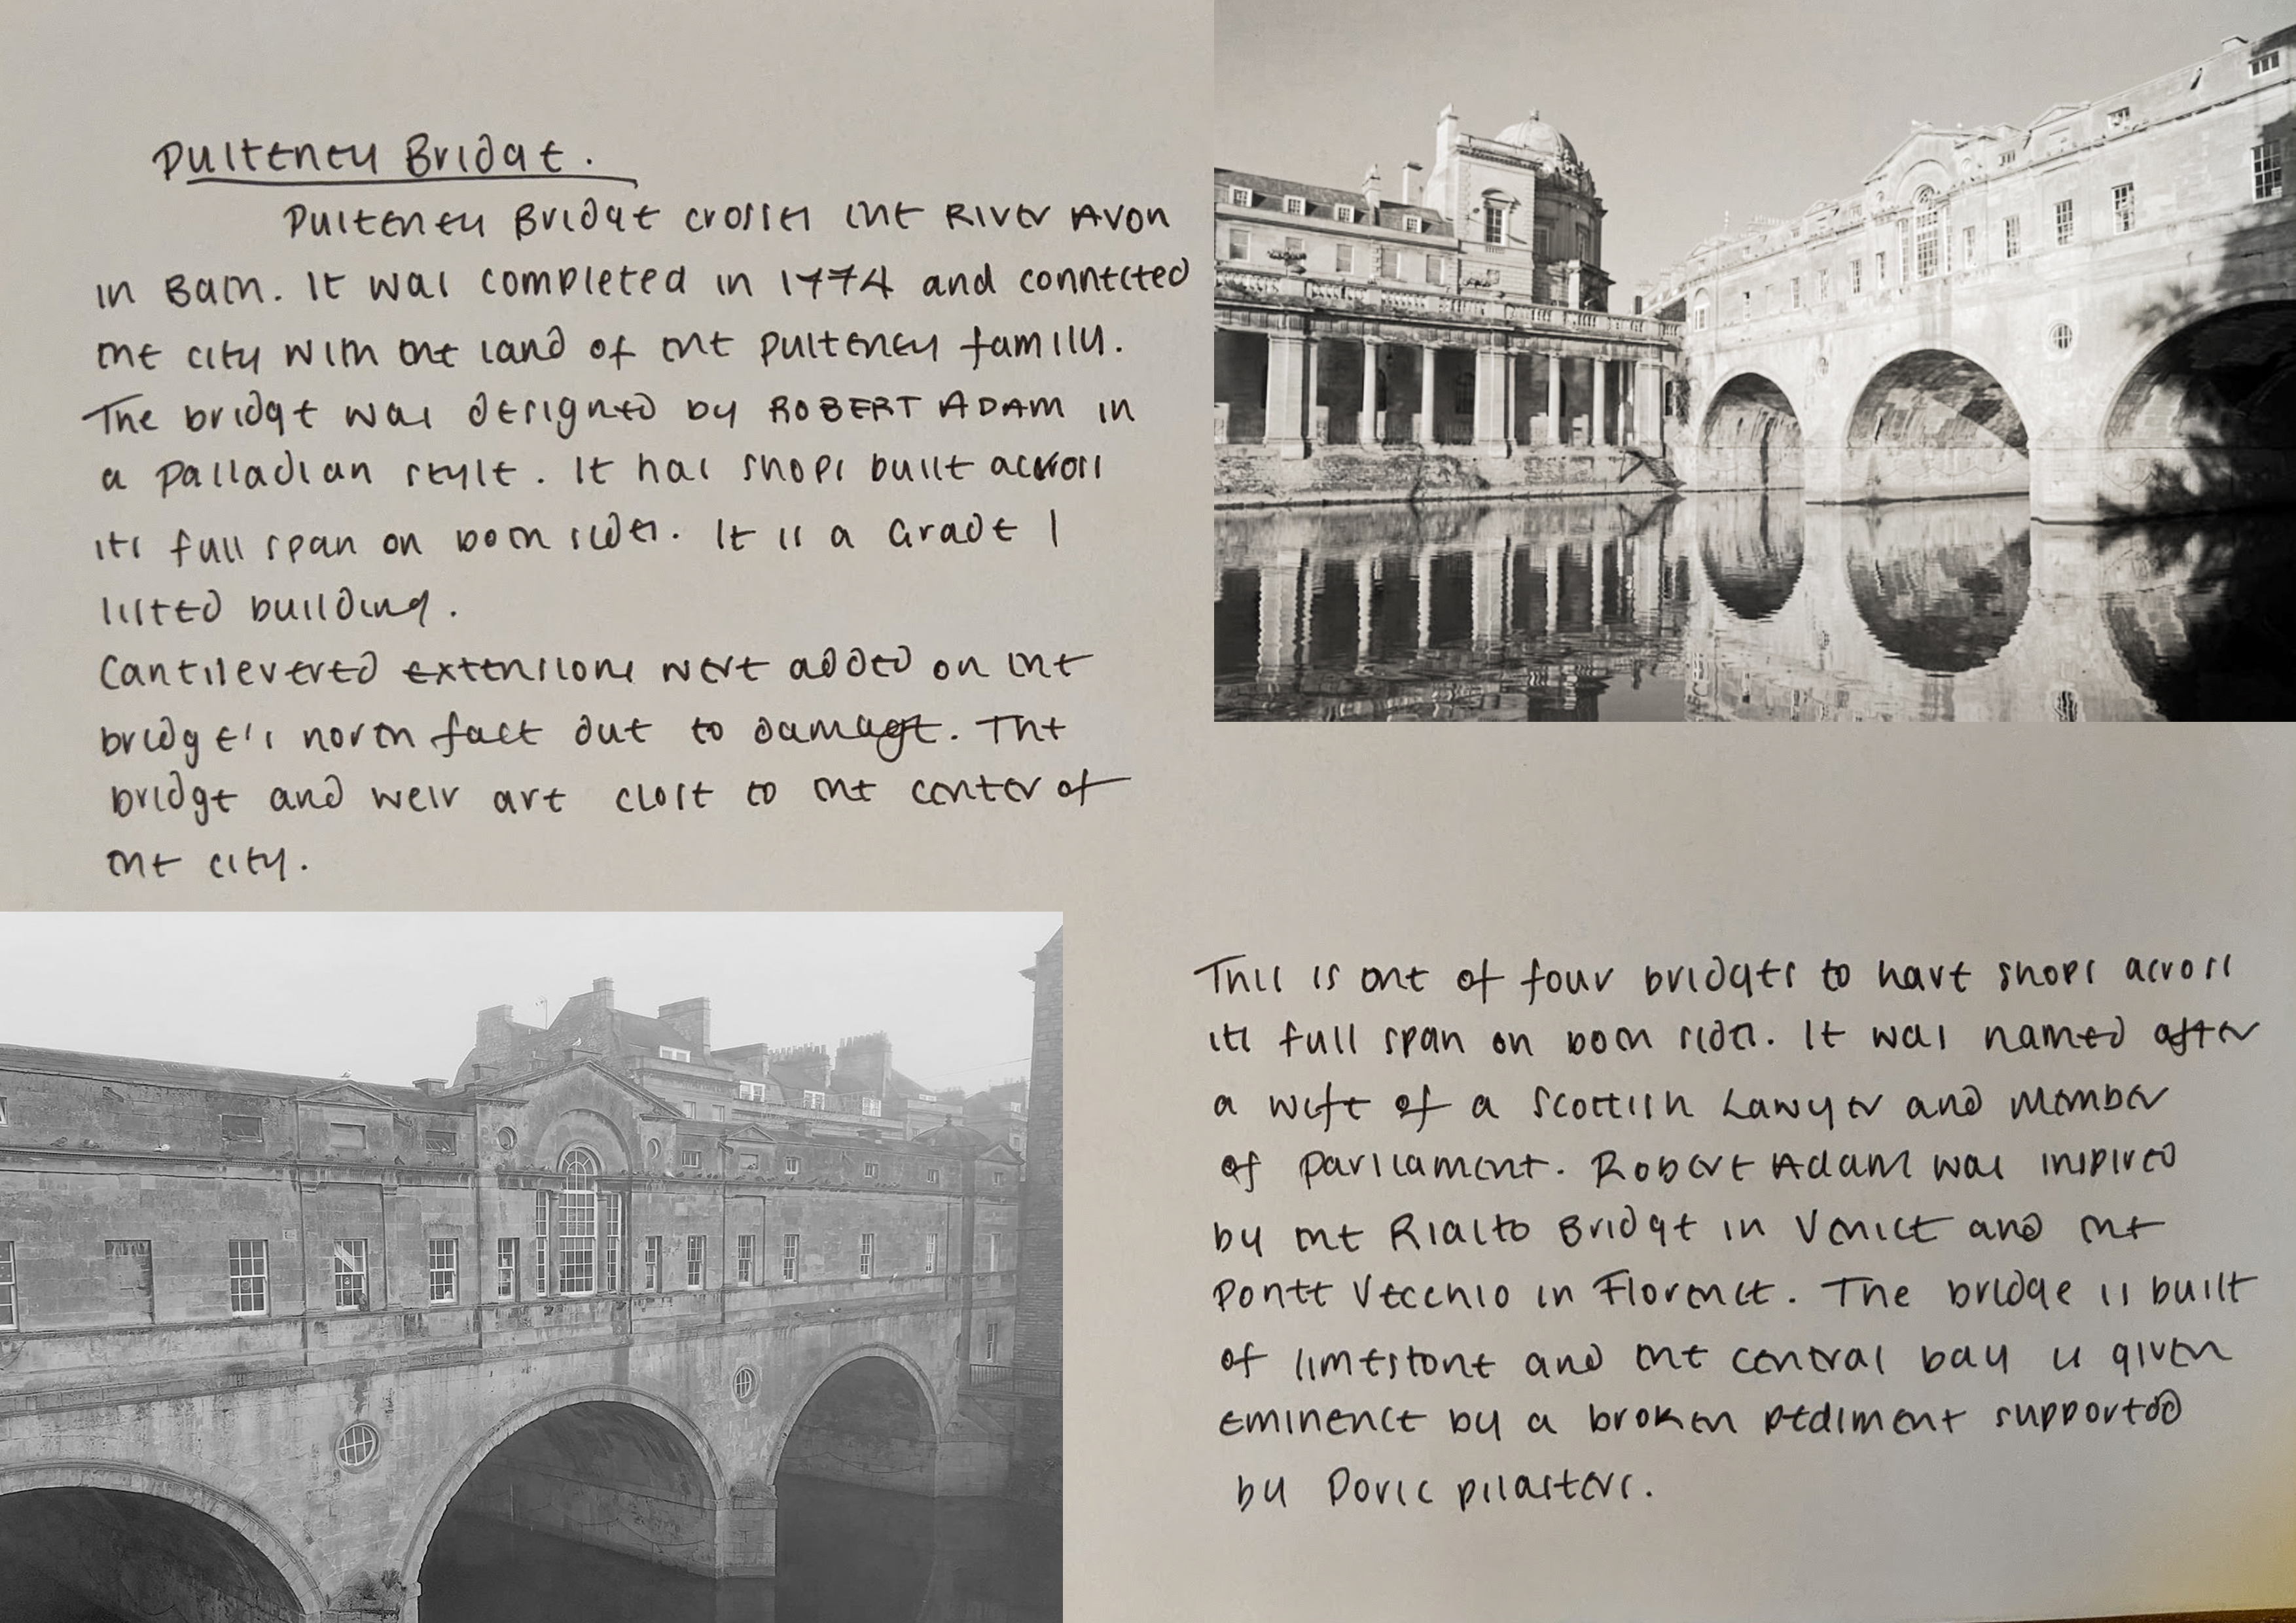 Pulteney Bridge.
Pulteney Bridge crosses the RIVER AVON
in Bath. It was completed in 1774 and connected
the city with the land of the Pulteney family.
The bridge was designed by ROBERT ADAM in
a Palladian style. It has shops built across
its full span on both sides. It is a Grade 1
listed building.
Cantilevered extensions were added on the
bridge's north face due to damage. The
bridge and weir are close to the center of
the city.
This is one of four bridges to have shops across
its full span on both sides. It was named after
a wife of a Scottish Lawyer and Member
of parliament. Robert Adam was inspired
by the Rialto Bridge in Venice and the
Ponte Vecchio in Florence. The bridge is built
of limestone and the central bay is given
eminence by a broken pediment supported
by Doric pilasters.